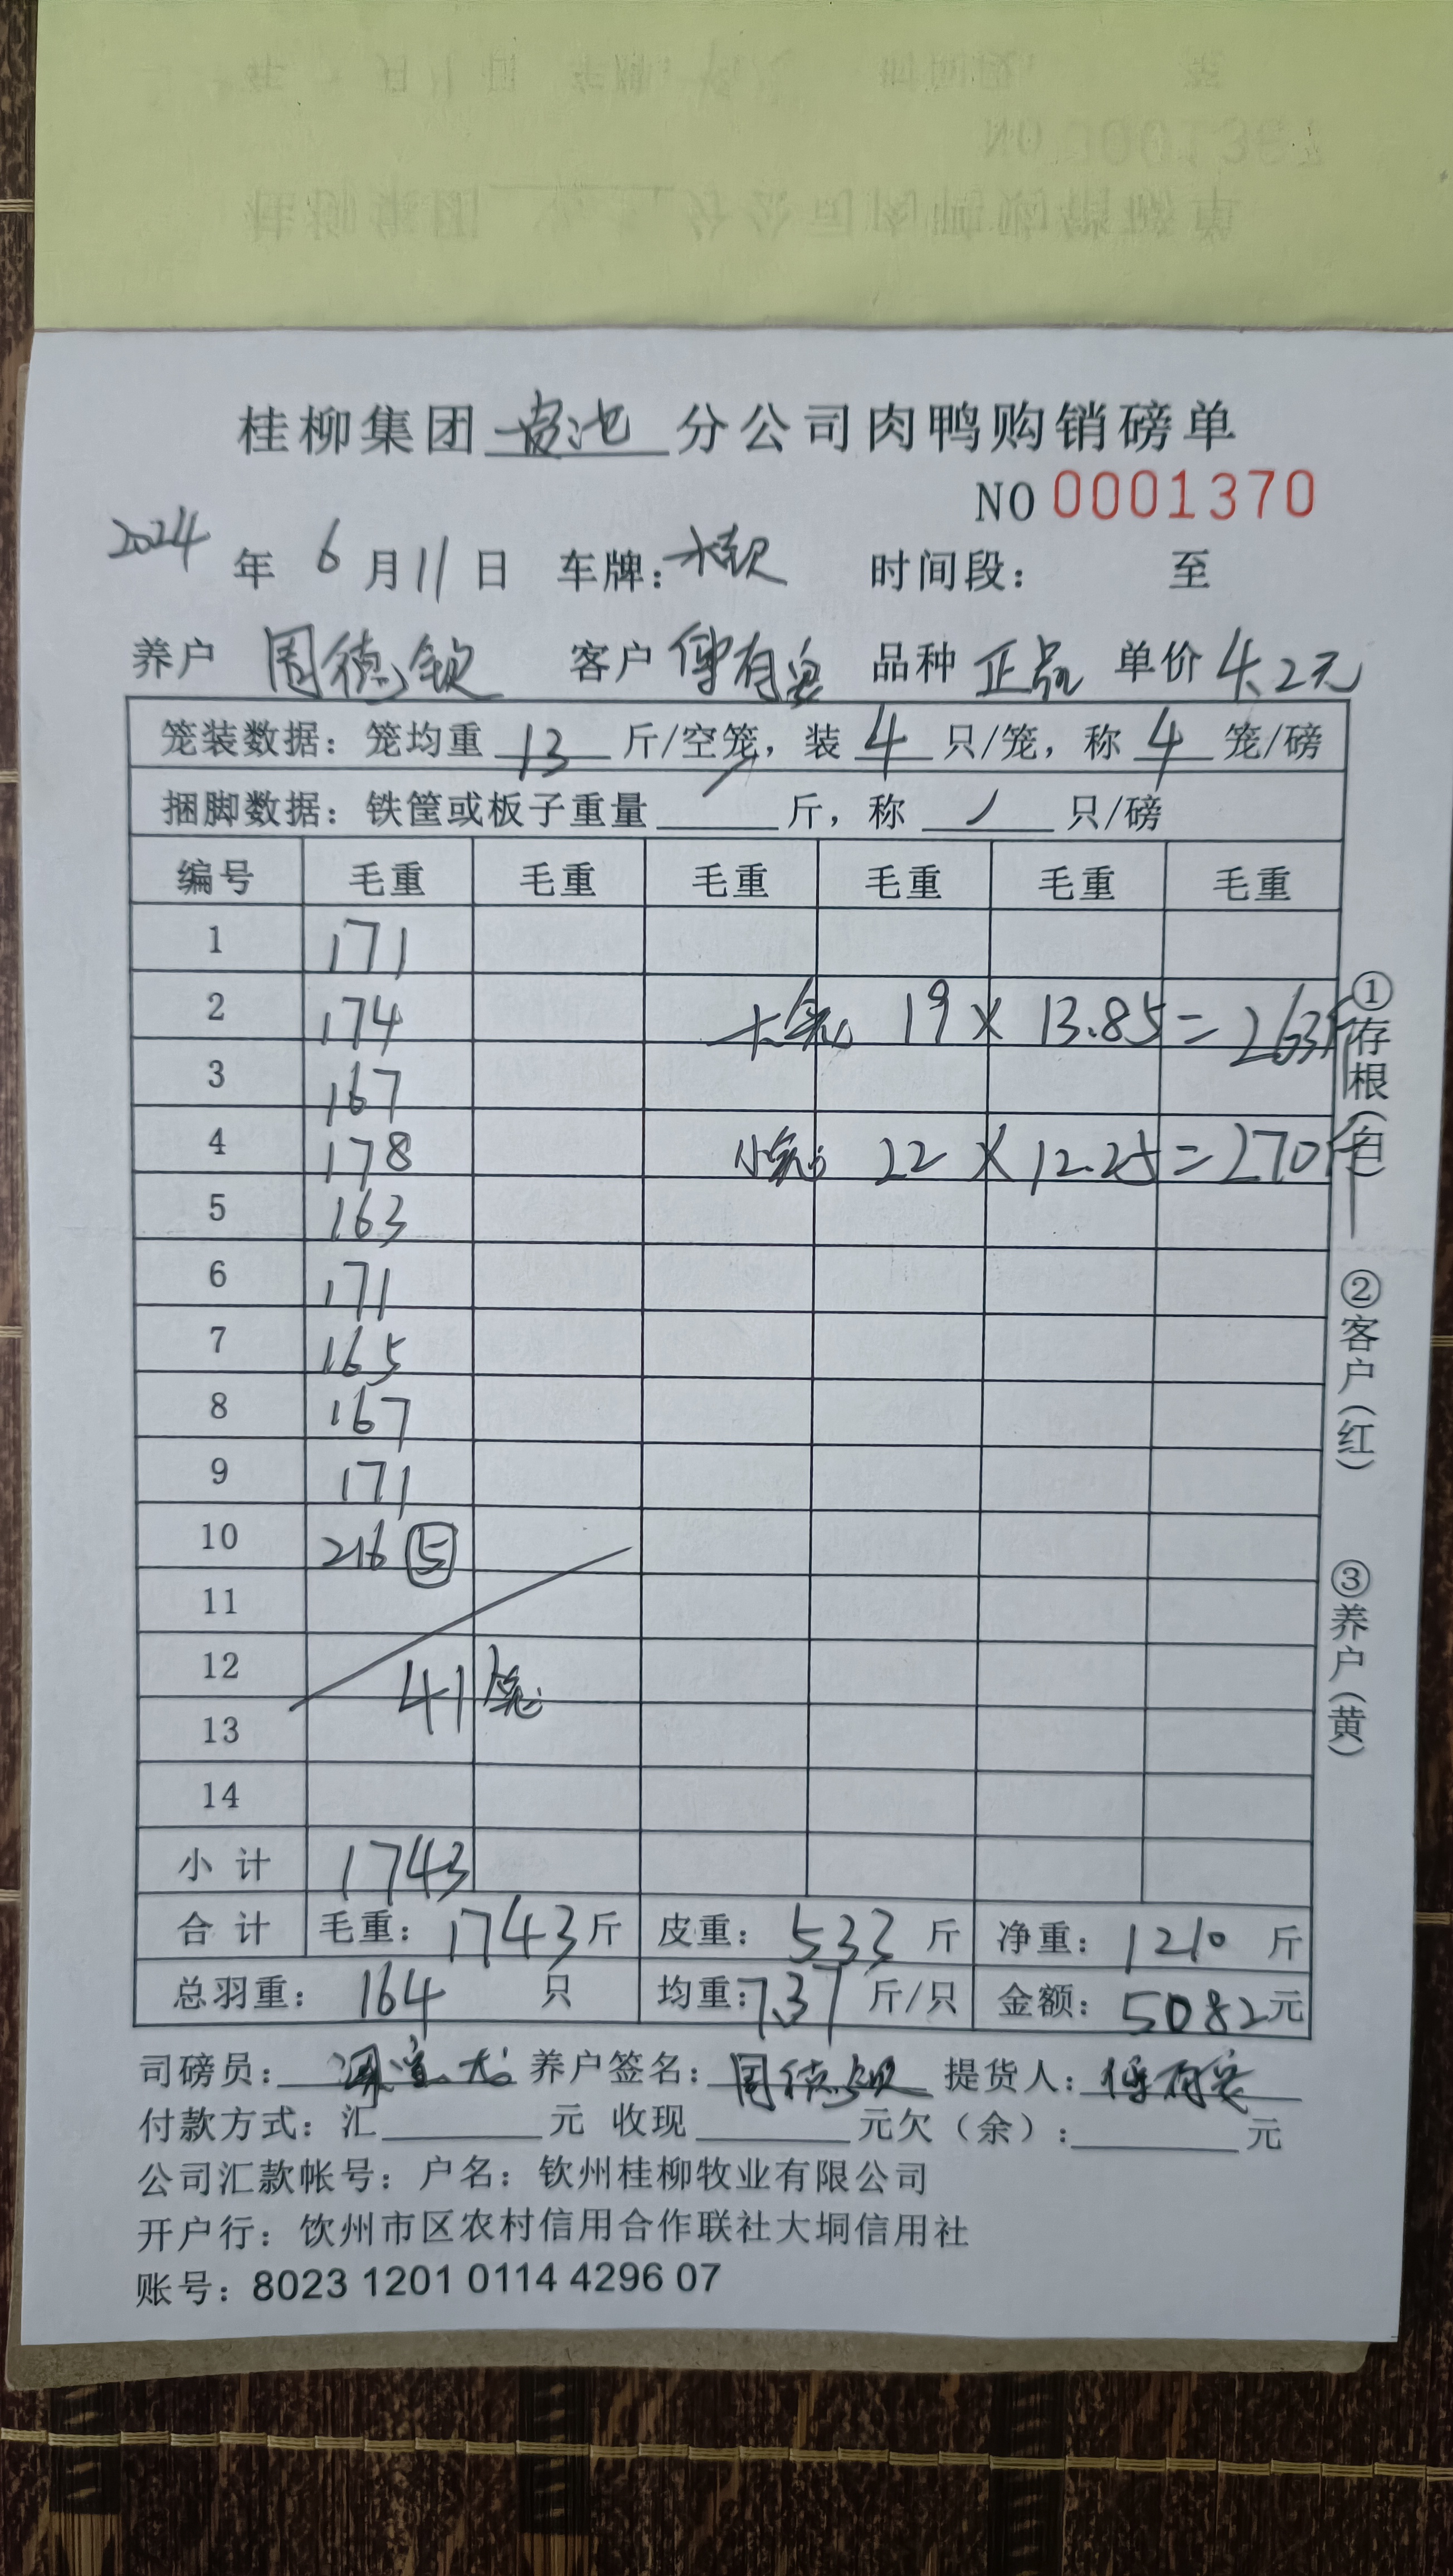 桂柳集团 分公司肉鸭购销磅单
NO 0001370
2024 年 6 月 11 日 车牌: 时间段: 至
养户 周德钦 客户 傅有 品种 正品 单价 4.2元
笼装数据: 笼均重 13 斤/空笼, 装 4 只/笼, 称 4 笼/磅
捆脚数据: 铁筐或板子重量 / 斤, 称 / 只/磅
编号 毛重 毛重 毛重 毛重 毛重 毛重
1 171
2 174 大笼 19 X 13.85 = 263斤
3 167
4 178 小笼 22 X 12.25 = 270斤
5 163
6 171
7 165
8 167
9 171
10 216 ⑤
11
12 41笼
13
14
小计 1743
合计 毛重: 1743斤 皮重: 533 斤 净重: 1210 斤
总羽重: 164 只 均重: 7.37 斤/只 金额: 5082元
司磅员: 养户签名: 周德钦 提货人: 傅有
付款方式: 汇 元 收现 元欠(余): 元
公司汇款帐号: 户名: 钦州桂柳牧业有限公司
开户行: 饮州市区农村信用合作联社大垌信用社
账号: 8023 1201 0114 4296 07
①存根(白)
②客户(红)
③养户(黄)